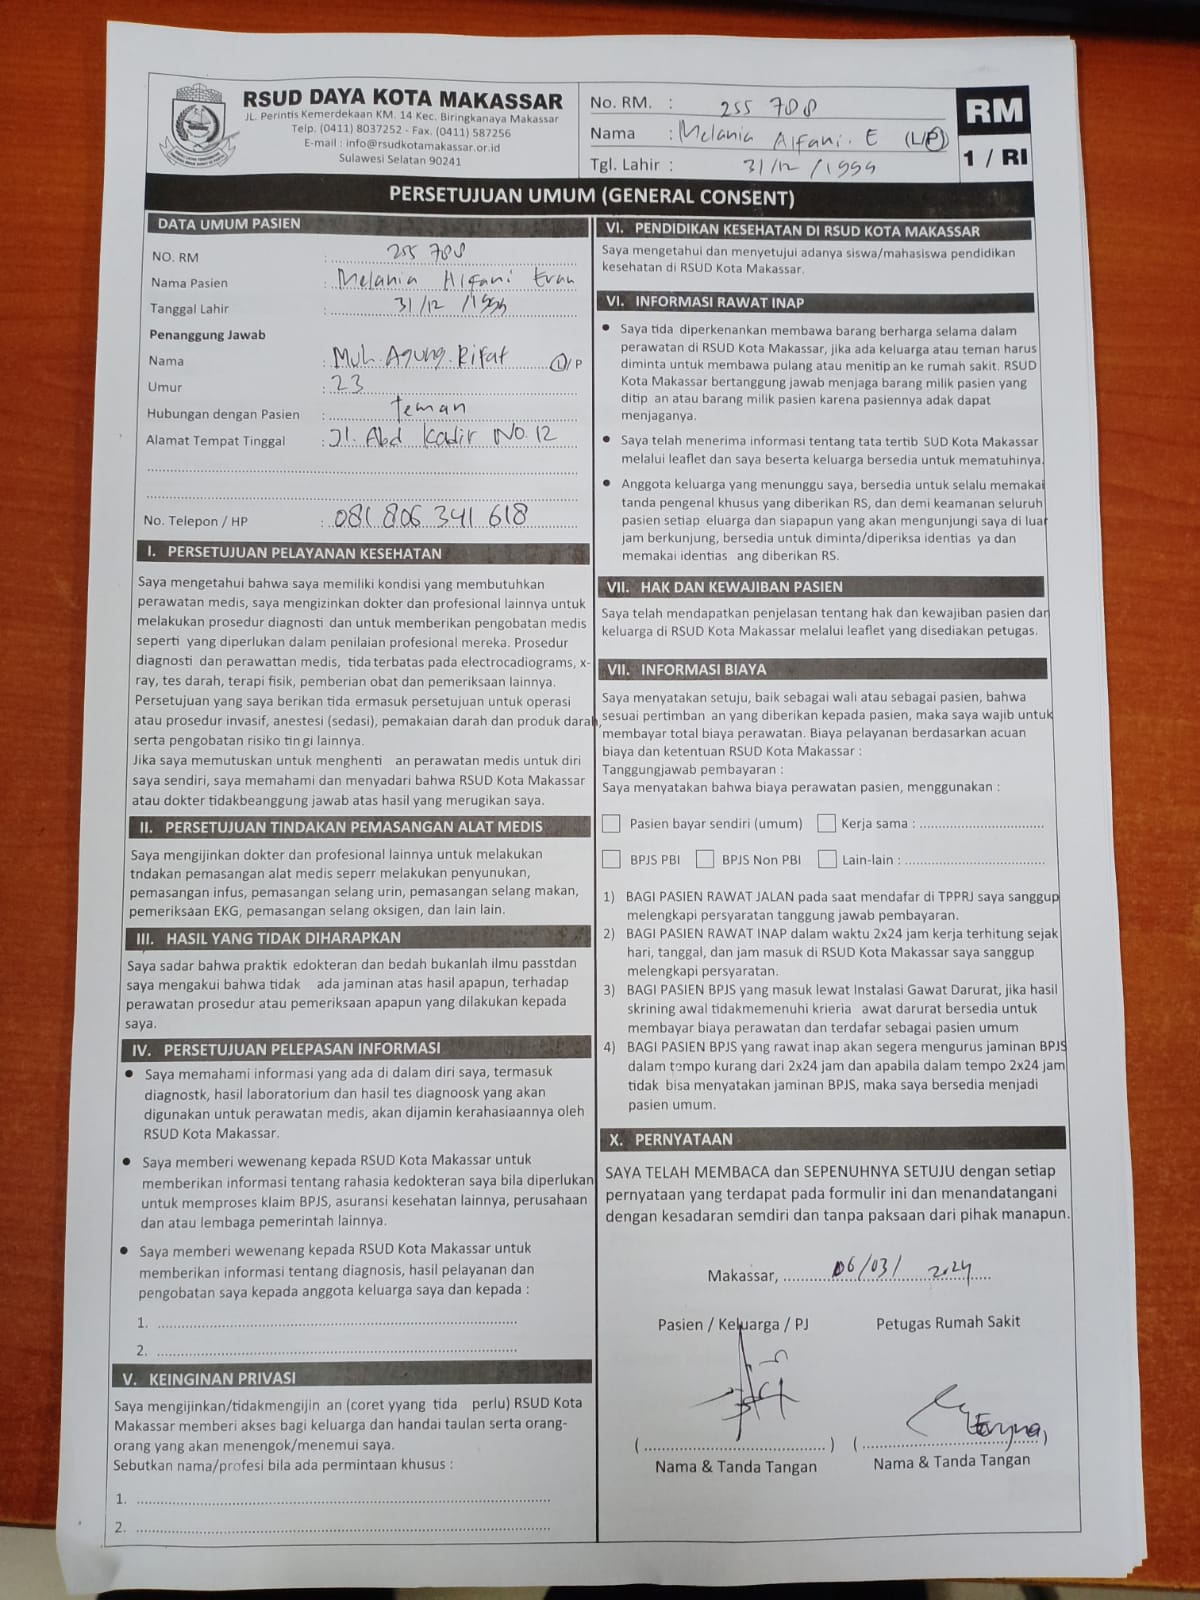 RSUD DAYA KOTA MAKASSAR
JL. Perintis Kemerdekaan KM. 14 Kec. Biringkanaya Makassar
Telp. (0411) 8037252 - Fax. (0411) 587256
E-mail : info@rsudkotamakassar.or.id
Sulawesi Selatan 90241
No. RM. : 255 708
Nama : Melania Alfani. E (L/P)
Tgl. Lahir : 31/12/1999
RM
1 / RI
PERSETUJUAN UMUM (GENERAL CONSENT)
DATA UMUM PASIEN
NO. RM : 255 708
Nama Pasien : Melania Alfani
Tanggal Lahir : 31/12/1999
Penanggung Jawab
Nama : Muh. Agung. Rifat L/P
Umur : 23
Hubungan dengan Pasien : teman
Alamat Tempat Tinggal : Jl. Abd Kadir No. 12
No. Telepon / HP : 081 806 341 618
I. PERSETUJUAN PELAYANAN KESEHATAN
Saya mengetahui bahwa saya memiliki kondisi yang membutuhkan
perawatan medis, saya mengizinkan dokter dan profesional lainnya untuk
melakukan prosedur diagnosti dan untuk memberikan pengobatan medis
seperti yang diperlukan dalam penilaian profesional mereka. Prosedur
diagnosti dan perawattan medis, tida terbatas pada electrocadiograms, x-
ray, tes darah, terapi fisik, pemberian obat dan pemeriksaan lainnya.
Persetujuan yang saya berikan tida ermasuk persetujuan untuk operasi
atau prosedur invasif, anestesi (sedasi), pemakaian darah dan produk darah,
serta pengobatan risiko tin gi lainnya.
Jika saya memutuskan untuk menghenti an perawatan medis untuk diri
saya sendiri, saya memahami dan menyadari bahwa RSUD Kota Makassar
atau dokter tidakbeanggung jawab atas hasil yang merugikan saya.
II. PERSETUJUAN TINDAKAN PEMASANGAN ALAT MEDIS
Saya mengijinkan dokter dan profesional lainnya untuk melakukan
tndakan pemasangan alat medis seperr melakukan penyunukan,
pemasangan infus, pemasangan selang urin, pemasangan selang makan,
pemeriksaan EKG, pemasangan selang oksigen, dan lain lain.
III. HASIL YANG TIDAK DIHARAPKAN
Saya sadar bahwa praktik edokteran dan bedah bukanlah ilmu passtdan
saya mengakui bahwa tidak ada jaminan atas hasil apapun, terhadap
perawatan prosedur atau pemeriksaan apapun yang dilakukan kepada
saya.
IV. PERSETUJUAN PELEPASAN INFORMASI
• Saya memahami informasi yang ada di dalam diri saya, termasuk
diagnostk, hasil laboratorium dan hasil tes diagnoosk yang akan
digunakan untuk perawatan medis, akan dijamin kerahasiaannya oleh
RSUD Kota Makassar.
• Saya memberi wewenang kepada RSUD Kota Makassar untuk
memberikan informasi tentang rahasia kedokteran saya bila diperlukan
untuk memproses klaim BPJS, asuransi kesehatan lainnya, perusahaan
dan atau lembaga pemerintah lainnya.
• Saya memberi wewenang kepada RSUD Kota Makassar untuk
memberikan informasi tentang diagnosis, hasil pelayanan dan
pengobatan saya kepada anggota keluarga saya dan kepada :
1.
2.
V. KEINGINAN PRIVASI
Saya mengijinkan/tidakmengijin an (coret yyang tida perlu) RSUD Kota
Makassar memberi akses bagi keluarga dan handai taulan serta orang-
orang yang akan menengok/menemui saya.
Sebutkan nama/profesi bila ada permintaan khusus :
1.
2.
VI. PENDIDIKAN KESEHATAN DI RSUD KOTA MAKASSAR
Saya mengetahui dan menyetujui adanya siswa/mahasiswa pendidikan
kesehatan di RSUD Kota Makassar.
VI. INFORMASI RAWAT INAP
• Saya tida diperkenankan membawa barang berharga selama dalam
perawatan di RSUD Kota Makassar, jika ada keluarga atau teman harus
diminta untuk membawa pulang atau menitip an ke rumah sakit. RSUD
Kota Makassar bertanggung jawab menjaga barang milik pasien yang
ditip an atau barang milik pasien karena pasiennya adak dapat
menjaganya.
• Saya telah menerima informasi tentang tata tertib SUD Kota Makassar
melalui leaflet dan saya beserta keluarga bersedia untuk mematuhinya.
• Anggota keluarga yang menunggu saya, bersedia untuk selalu memakai
tanda pengenal khusus yang diberikan RS, dan demi keamanan seluruh
pasien setiap eluarga dan siapapun yang akan mengunjungi saya di luar
jam berkunjung, bersedia untuk diminta/diperiksa identias ya dan
memakai identias ang diberikan RS.
VII. HAK DAN KEWAJIBAN PASIEN
Saya telah mendapatkan penjelasan tentang hak dan kewajiban pasien dan
keluarga di RSUD Kota Makassar melalui leaflet yang disediakan petugas.
VII. INFORMASI BIAYA
Saya menyatakan setuju, baik sebagai wali atau sebagai pasien, bahwa
sesuai pertimban an yang diberikan kepada pasien, maka saya wajib untuk
membayar total biaya perawatan. Biaya pelayanan berdasarkan acuan
biaya dan ketentuan RSUD Kota Makassar :
Tanggungjawab pembayaran :
Saya menyatakan bahwa biaya perawatan pasien, menggunakan :
Pasien bayar sendiri (umum) Kerja sama :
BPJS PBI BPJS Non PBI Lain-lain :
1) BAGI PASIEN RAWAT JALAN pada saat mendafar di TPPRJ saya sanggup
melengkapi persyaratan tanggung jawab pembayaran.
2) BAGI PASIEN RAWAT INAP dalam waktu 2x24 jam kerja terhitung sejak
hari, tanggal, dan jam masuk di RSUD Kota Makassar saya sanggup
melengkapi persyaratan.
3) BAGI PASIEN BPJS yang masuk lewat Instalasi Gawat Darurat, jika hasil
skrining awal tidakmemenuhi krieria awat darurat bersedia untuk
membayar biaya perawatan dan terdafar sebagai pasien umum
4) BAGI PASIEN BPJS yang rawat inap akan segera mengurus jaminan BPJS
dalam tempo kurang dari 2x24 jam dan apabila dalam tempo 2x24 jam
tidak bisa menyatakan jaminan BPJS, maka saya bersedia menjadi
pasien umum.
X. PERNYATAAN
SAYA TELAH MEMBACA dan SEPENUHNYA SETUJU dengan setiap
pernyataan yang terdapat pada formulir ini dan menandatangani
dengan kesadaran semdiri dan tanpa paksaan dari pihak manapun.
Makassar, 06/03/2024
Pasien / Keluarga / PJ Petugas Rumah Sakit
Nama & Tanda Tangan Nama & Tanda Tangan